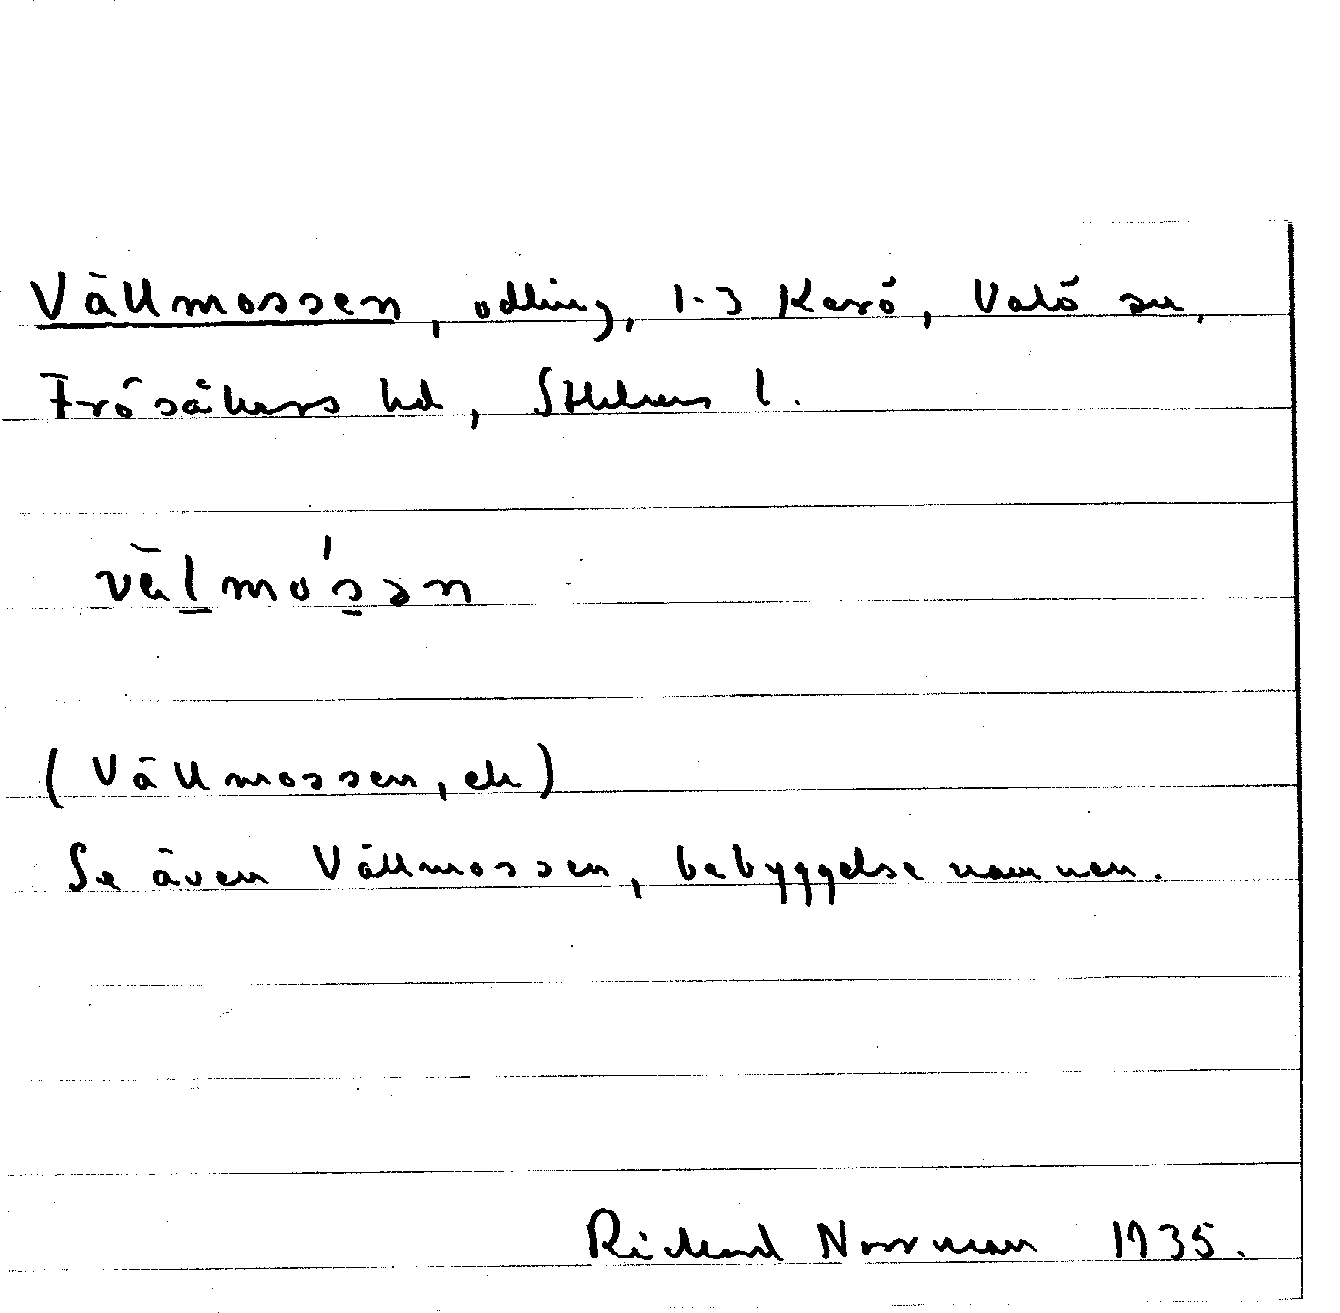 Vällmossen, odling, 1-3 Karö, Valö sn,
Frösåkers hd, Sthlms l.
välmo'sən
(Vällmossen, ek)
Se även Vällmossen, bebyggelsenamnen.
Rickard Norrman 1935.